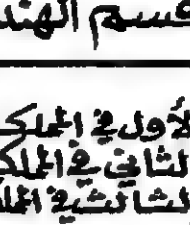 قسم الهند
لأول في الملك
لثاني في الملك
لثالث في الملك